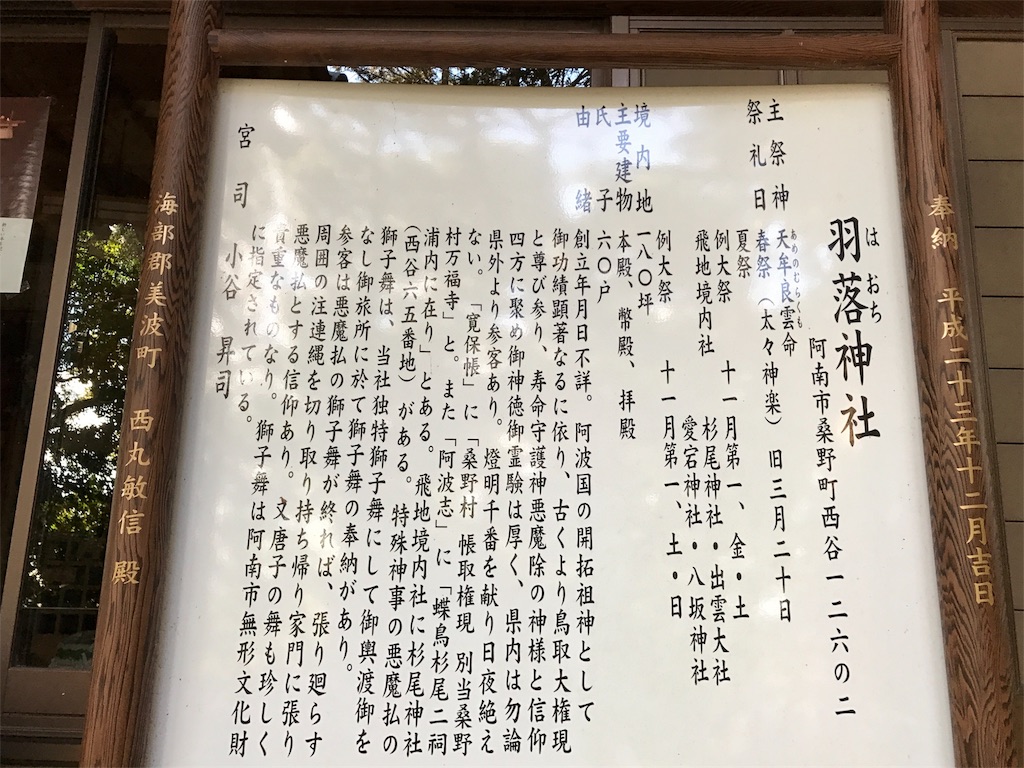 奉納 平成二十三年十二月吉日
羽落神社
はおち
阿南市桑野町西谷一二六の二
主祭神 天牟良雲命
あめのむらくも
祭礼日 春祭(太々神楽)旧三月二十日
夏祭
例大祭 十一月第一、金・土
飛地境内社 杉尾神社・出雲大社
愛宕神社・八坂神社
例大祭 十一月第一、土・日
境内地 一八〇坪
主要建物 本殿、幣殿、拝殿
氏子 六〇戸
由緒 創立年月日不詳。阿波国の開拓祖神として
御功績顕著なるに依り、古くより鳥取大権現
と尊び参り、寿命守護神悪魔除の神様と信仰
四方に聚め御神徳御霊験は厚く、県内は勿論
県外より参客あり。燈明千番を献り日夜絶え
ない。「寛保帳」に「桑野村 帳取権現 別当桑野
村万福寺」と。また「阿波志」に「蝶鳥杉尾二祠
浦内に在り」とある。飛地境内社に杉尾神社
(西谷六五番地)がある。特殊神事の悪魔払の
獅子舞は、当社独特獅子舞にして御輿渡御を
なし御旅所に於て獅子舞の奉納があり。
参客は悪魔払の獅子舞が終れば、張り廻らす
周囲の注連縄を切り取り持ち帰り家門に張り
悪魔払とする信仰あり。文唐子の舞も珍しく
貴重なものなり。獅子舞は阿南市無形文化財
に指定されている。
宮司 小谷昇司
海部郡美波町 西丸敏信殿